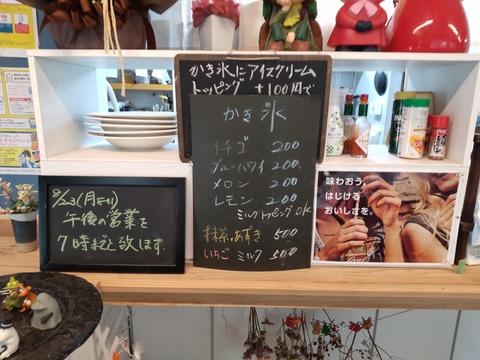 かき氷にアイスクリーム
トッピング +100円で
かき氷
イチゴ 200
ブルーハワイ 200
メロン 200
レモン 200
ミルクトッピングOK
抹茶あずき 500
いちごミルク 500
8/23(月)より
午後の営業を
7時までと致します.
味わおう、
はじける
おいしさを。